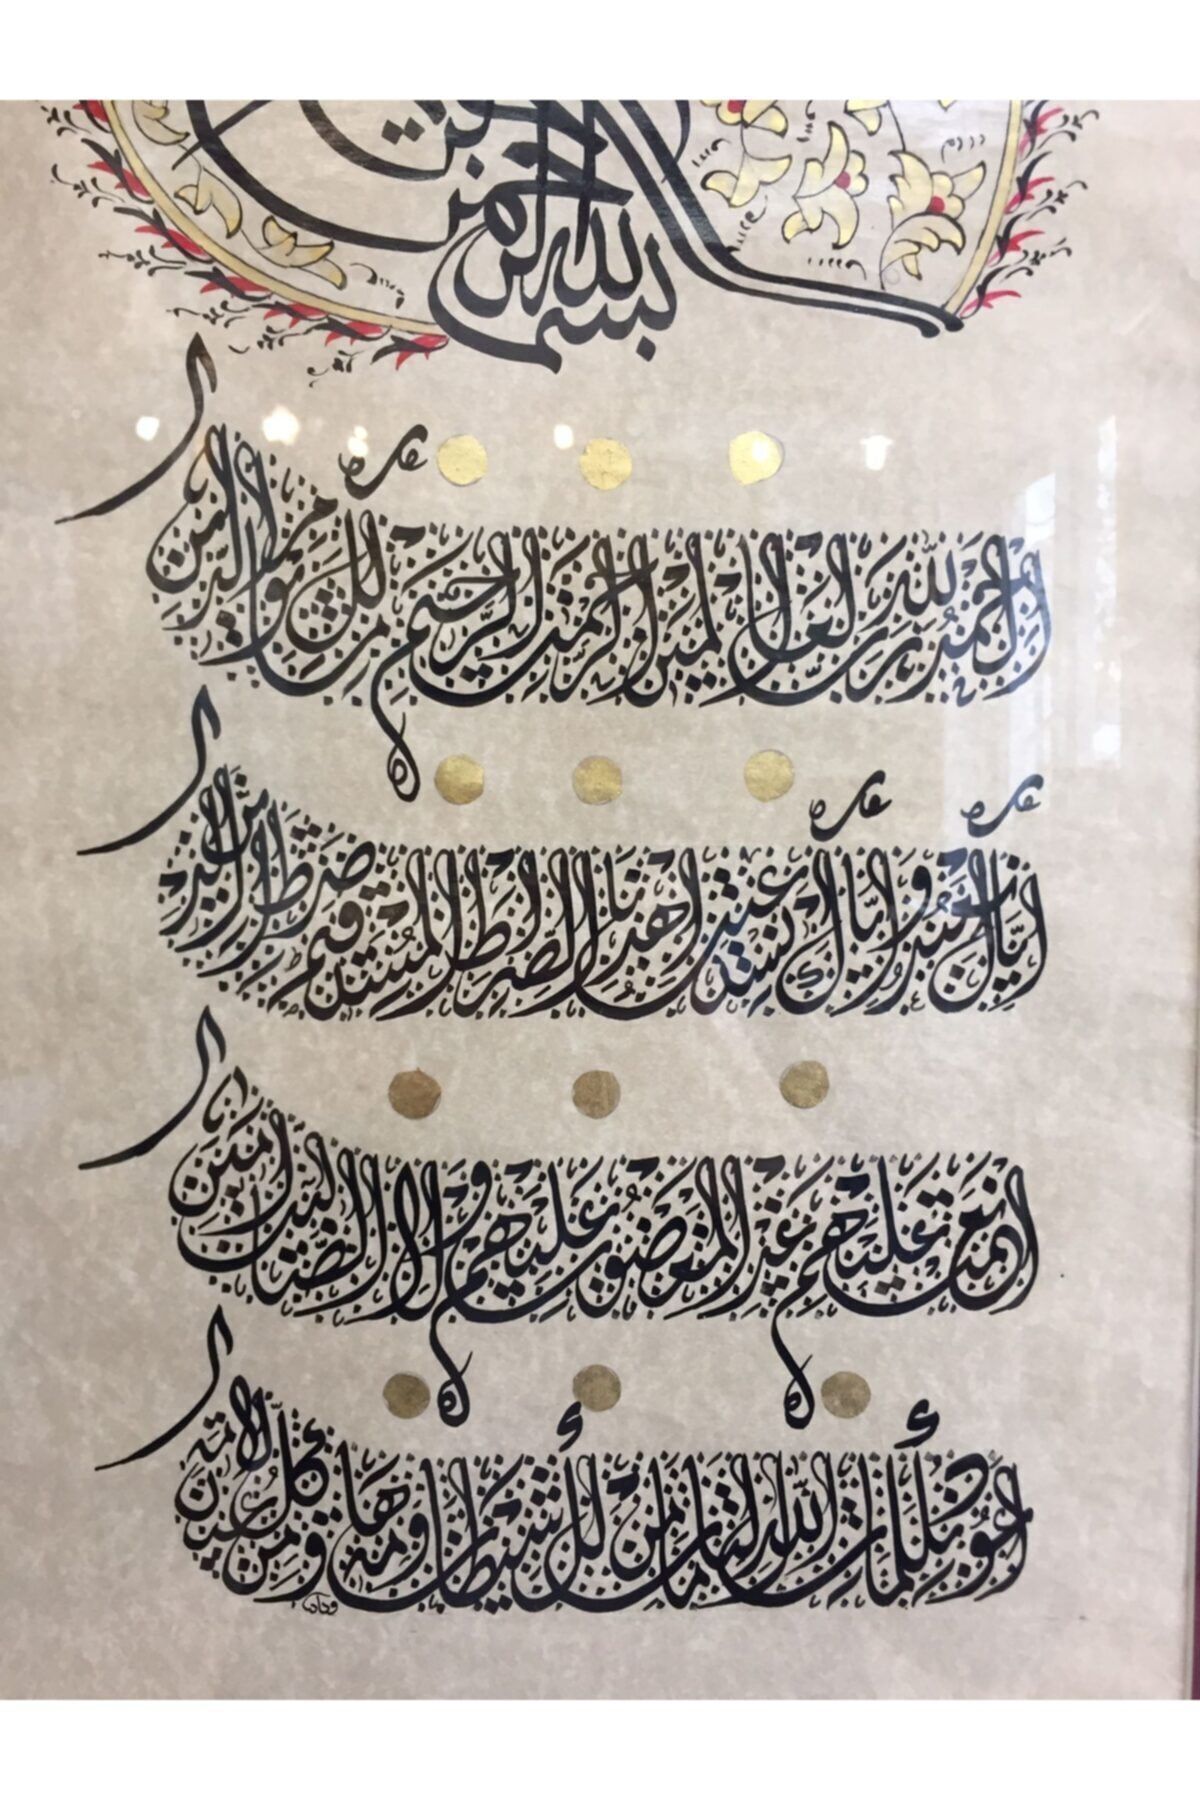 بسم الله الرحمن
الحمد لله رب العالمين الرحمن الرحيم ملك يوم الدين
اياك نعبد واياك نستعين اهدنا الصراط المستقيم صراط الذين
انعمت عليهم غير المغضوب عليهم ولا الضالين امين
أعوذ بكلمات الله التامات من كل شيطان وهامه ومن كل عين لامه